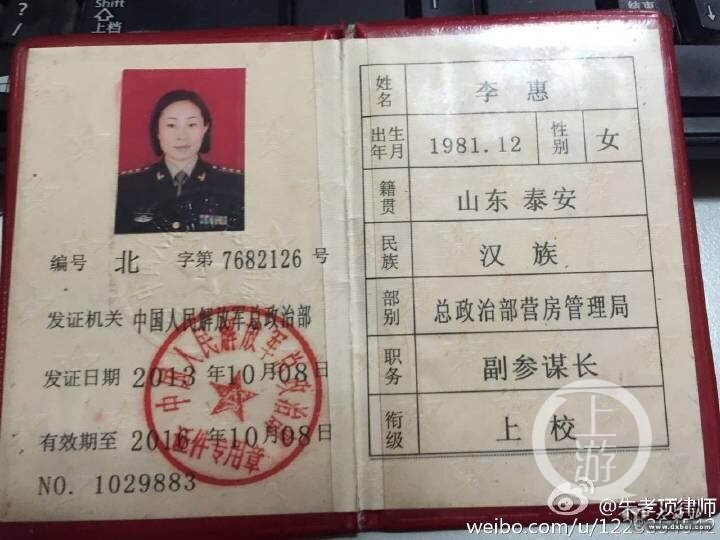 Shift
上档
姓名 李惠
出生年月 1981.12 性别 女
籍贯 山东 泰安
民族 汉族
部别 总政治部营房管理局
职务 副参谋长
衔级 上校
编号 北 字第 7682126 号
发证机关 中国人民解放军总政治部
发证日期 2013 年 10 月 08 日
有效期至 2016 年 10 月 08 日
NO. 1029883
中国人民解放军总政治部
证件专用章
上游
@朱孝顶律师
weibo.com/u/122
www.dxbei.com